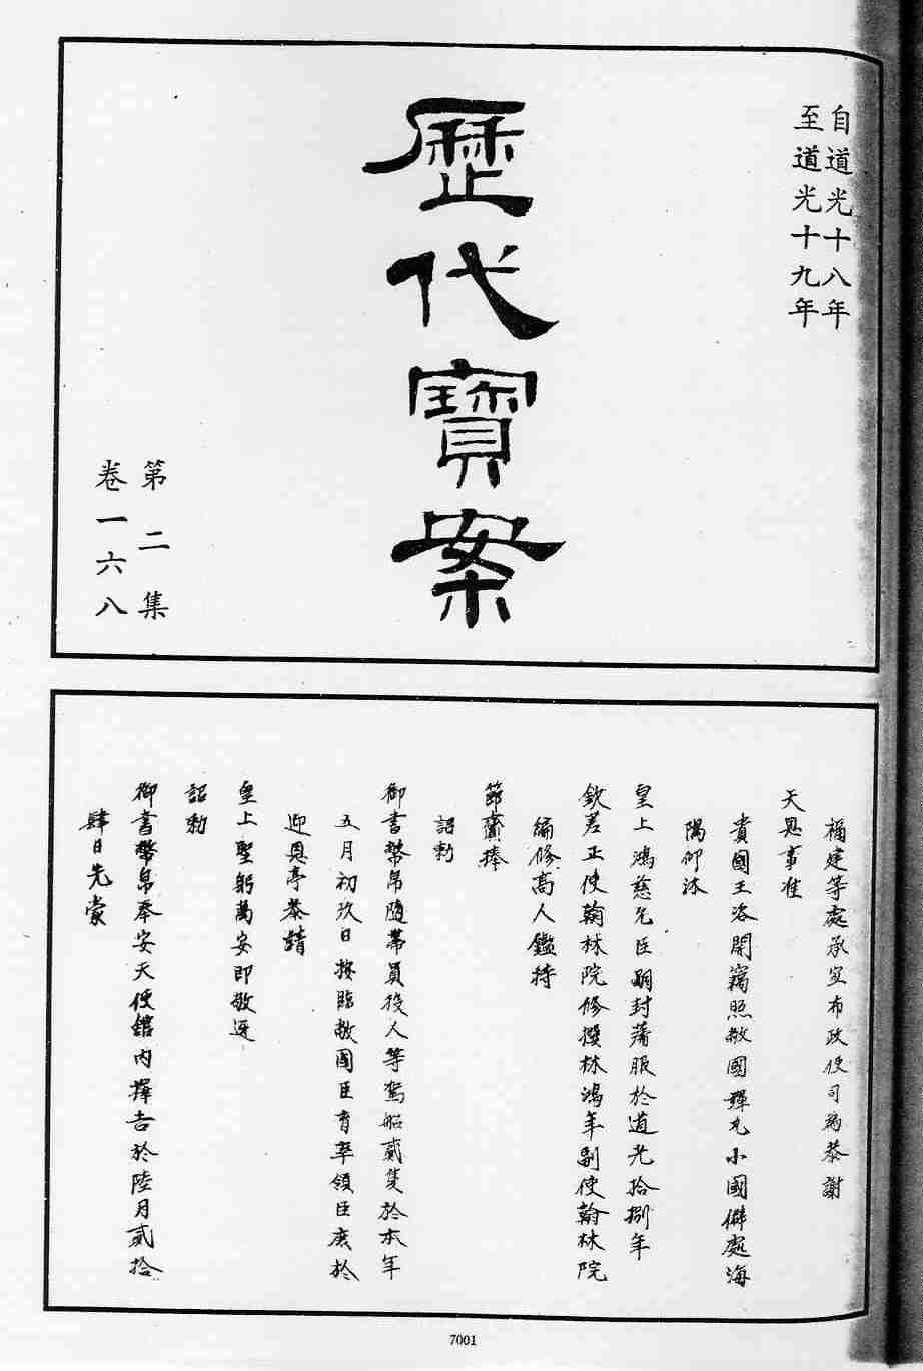 自道光十八年
至道光十九年
歷代寶案
第二集
卷一六八
福建等處承宣布政使司為恭謝
天恩事准
貴國王咨開竊照敝國彈丸小國僻處海
隅仰沐
皇上鴻慈允臣嗣封藩服於道光拾捌年
欽差正使翰林院修撰林鴻年副使翰林院
編修高人鑑持
節齎捧
詔勅
御書幣帛隨帶員役人等駕船貳隻於本年
五月初玖日按臨敝國臣育率領臣庶於
迎恩亭恭請
皇上聖躬萬安即敬迎
詔勅
御書幣帛奉安天使館內擇吉於陸月貳拾
肆日先蒙
7001